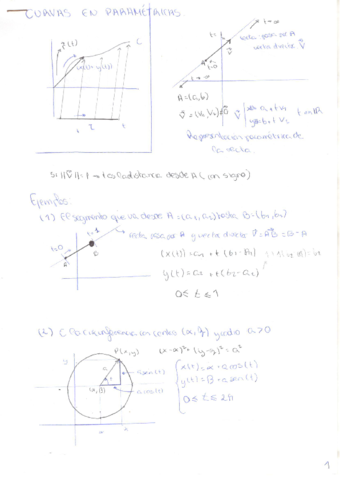 CURVAS EN PARAMÉTRICAS
t→∞
t=1
recta que pasa por A
vector director v⃗
t=0
t→-∞
A=(a,b)
v⃗=(v₁,v₂)≠0
x=a+tv₁
y=b+tv₂
t∈ℝ
Representación paramétrica de
la recta
Si ||v⃗||=1 → t es la distancia desde A (con signo)
Ejemplos:
(1) El segmento que va desde A=(a₁,a₂) hasta B=(b₁,b₂)
t=0
t=1
A
B
recta que pasa por A y vector director v⃗=AB⃗=B-A
x(t)=a₁+t(b₁-a₁)
y(t)=a₂+t(b₂-a₂)
0≤t≤1
(2) C la circunferencia con centro (α,β) y radio a>0
P(x,y)
(x-α)²+(y-β)²=a²
a
t
a sen(t)
(α,β)
a cos(t)
x(t)=α+a cos(t)
y(t)=β+a sen(t)
0≤t≤2π
1